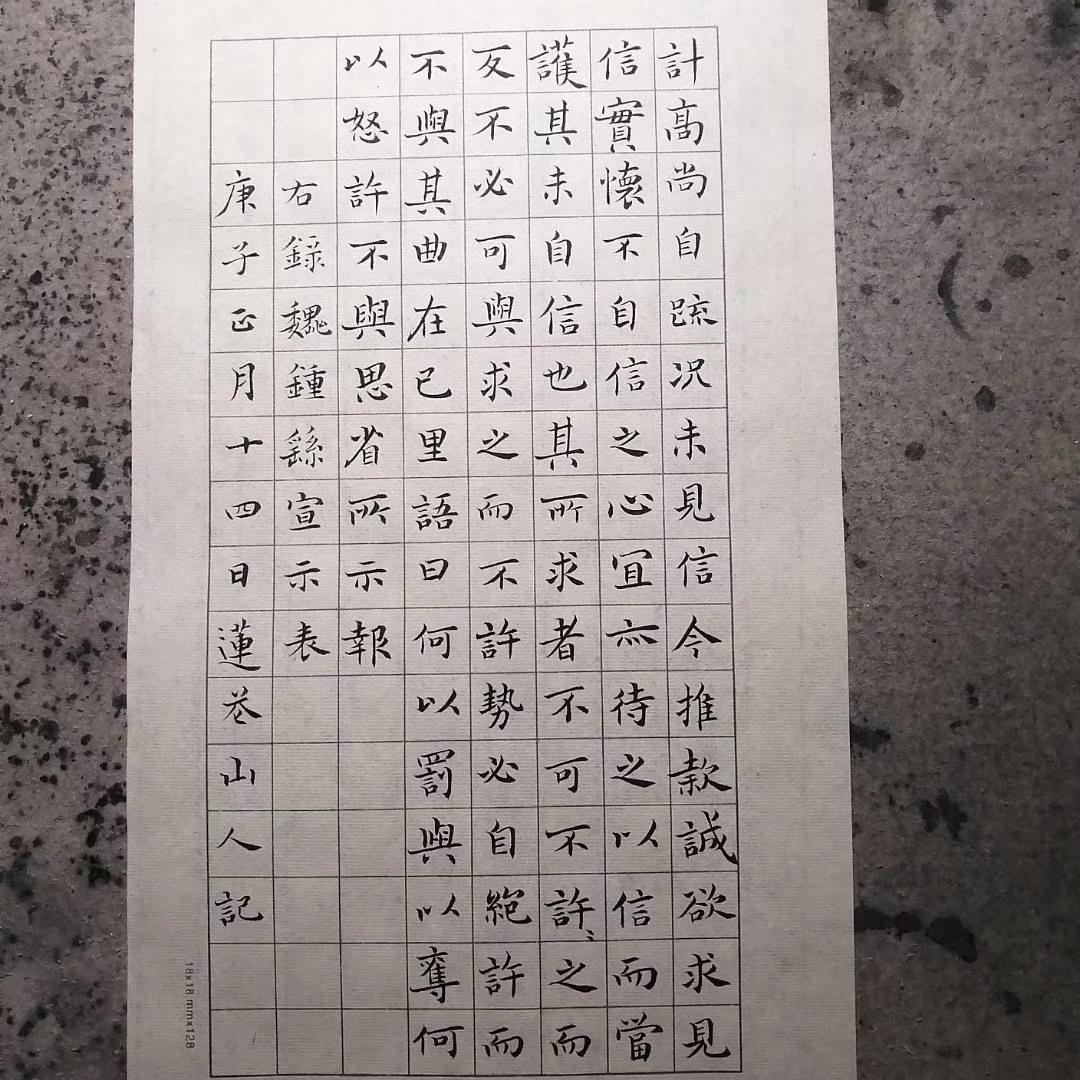 計高尚自疏况未見信今推款誠欲求見
信實懷不自信之心宜亦待之以信而當
護其未自信也其所求者不可不許〻之而
反不必可與求之而不許勢必自絕許而
不與其曲在己里語曰何以罰與以奪何
以怒許不與思省所示報
右錄魏鍾繇宣示表
庚子正月十四日蓮巷山人記
18x18 mmx128